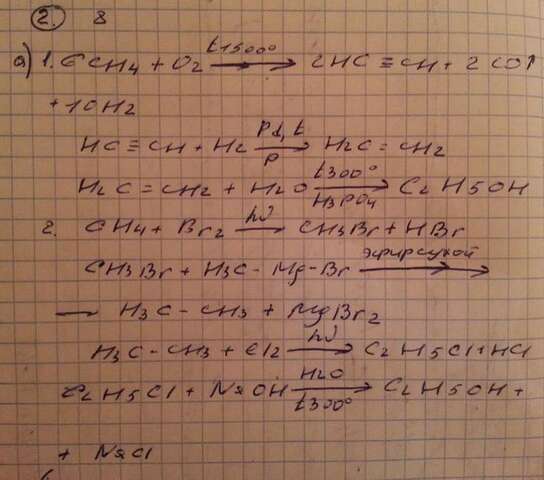 2. 8
а) 1. 6CH4 + O2 t1500° → 2HC ≡ CH + 2CO↑
+ 10H2
HC ≡ CH + H2 Pd, t → P H2C = CH2
H2C = CH2 + H2O t300° → H3PO4 C2H5OH
2. CH4 + Br2 hν → CH3Br + HBr
CH3Br + H3C - Mg - Br эфир сухой →
— H3C - CH3 + MgBr2
H3C - CH3 + Cl2 hν → C2H5Cl + HCl
C2H5Cl + NaOH H2O → t300° C2H5OH +
+ NaCl